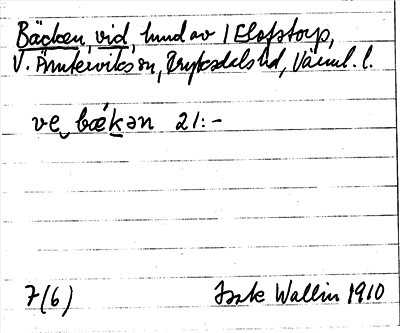 Bäcken, vid, hmd av 1 Elofstorp,
V. Ämterviks sn, Fryksdals hd, Värml. l.
ve bǽkən 21:-
7(6) Isak Wallin 1910